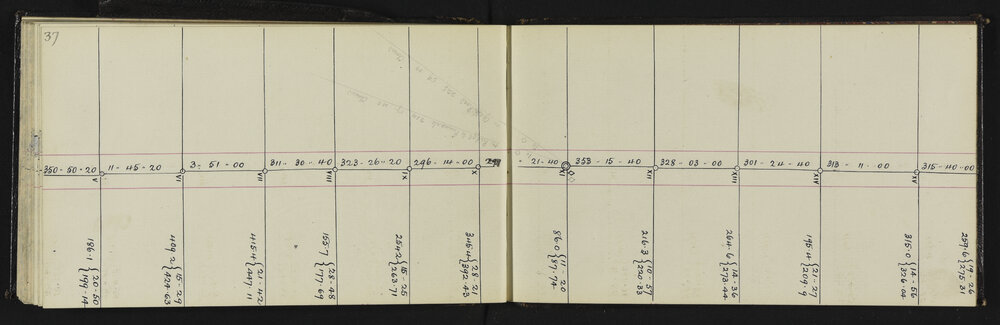 37
350-50-20 11-45-20 3-51-00 311-30-40 323-26-20 296-14-00 291-21-40 353-15-40 328-03-00 301-24-40 313-11-00 315-40-00
V VI VII VIII IX X XI XII XIII XIV XV
186.1 { 20-50
199.14
409.2 { 15-29
424.63
415.4 { 21-42
447.11
155.7 { 28-48
177.69
254.2 { 15-25
263.71
345.4 { 28-21
392.43
86.0 { 11-20
87.74
216.3 { 10-57
220.33
264.6 { 14-36
273.44
195.4 { 21-27
209.9
315.0 { 14-56
326.04
259.6 { 19-26
275.31